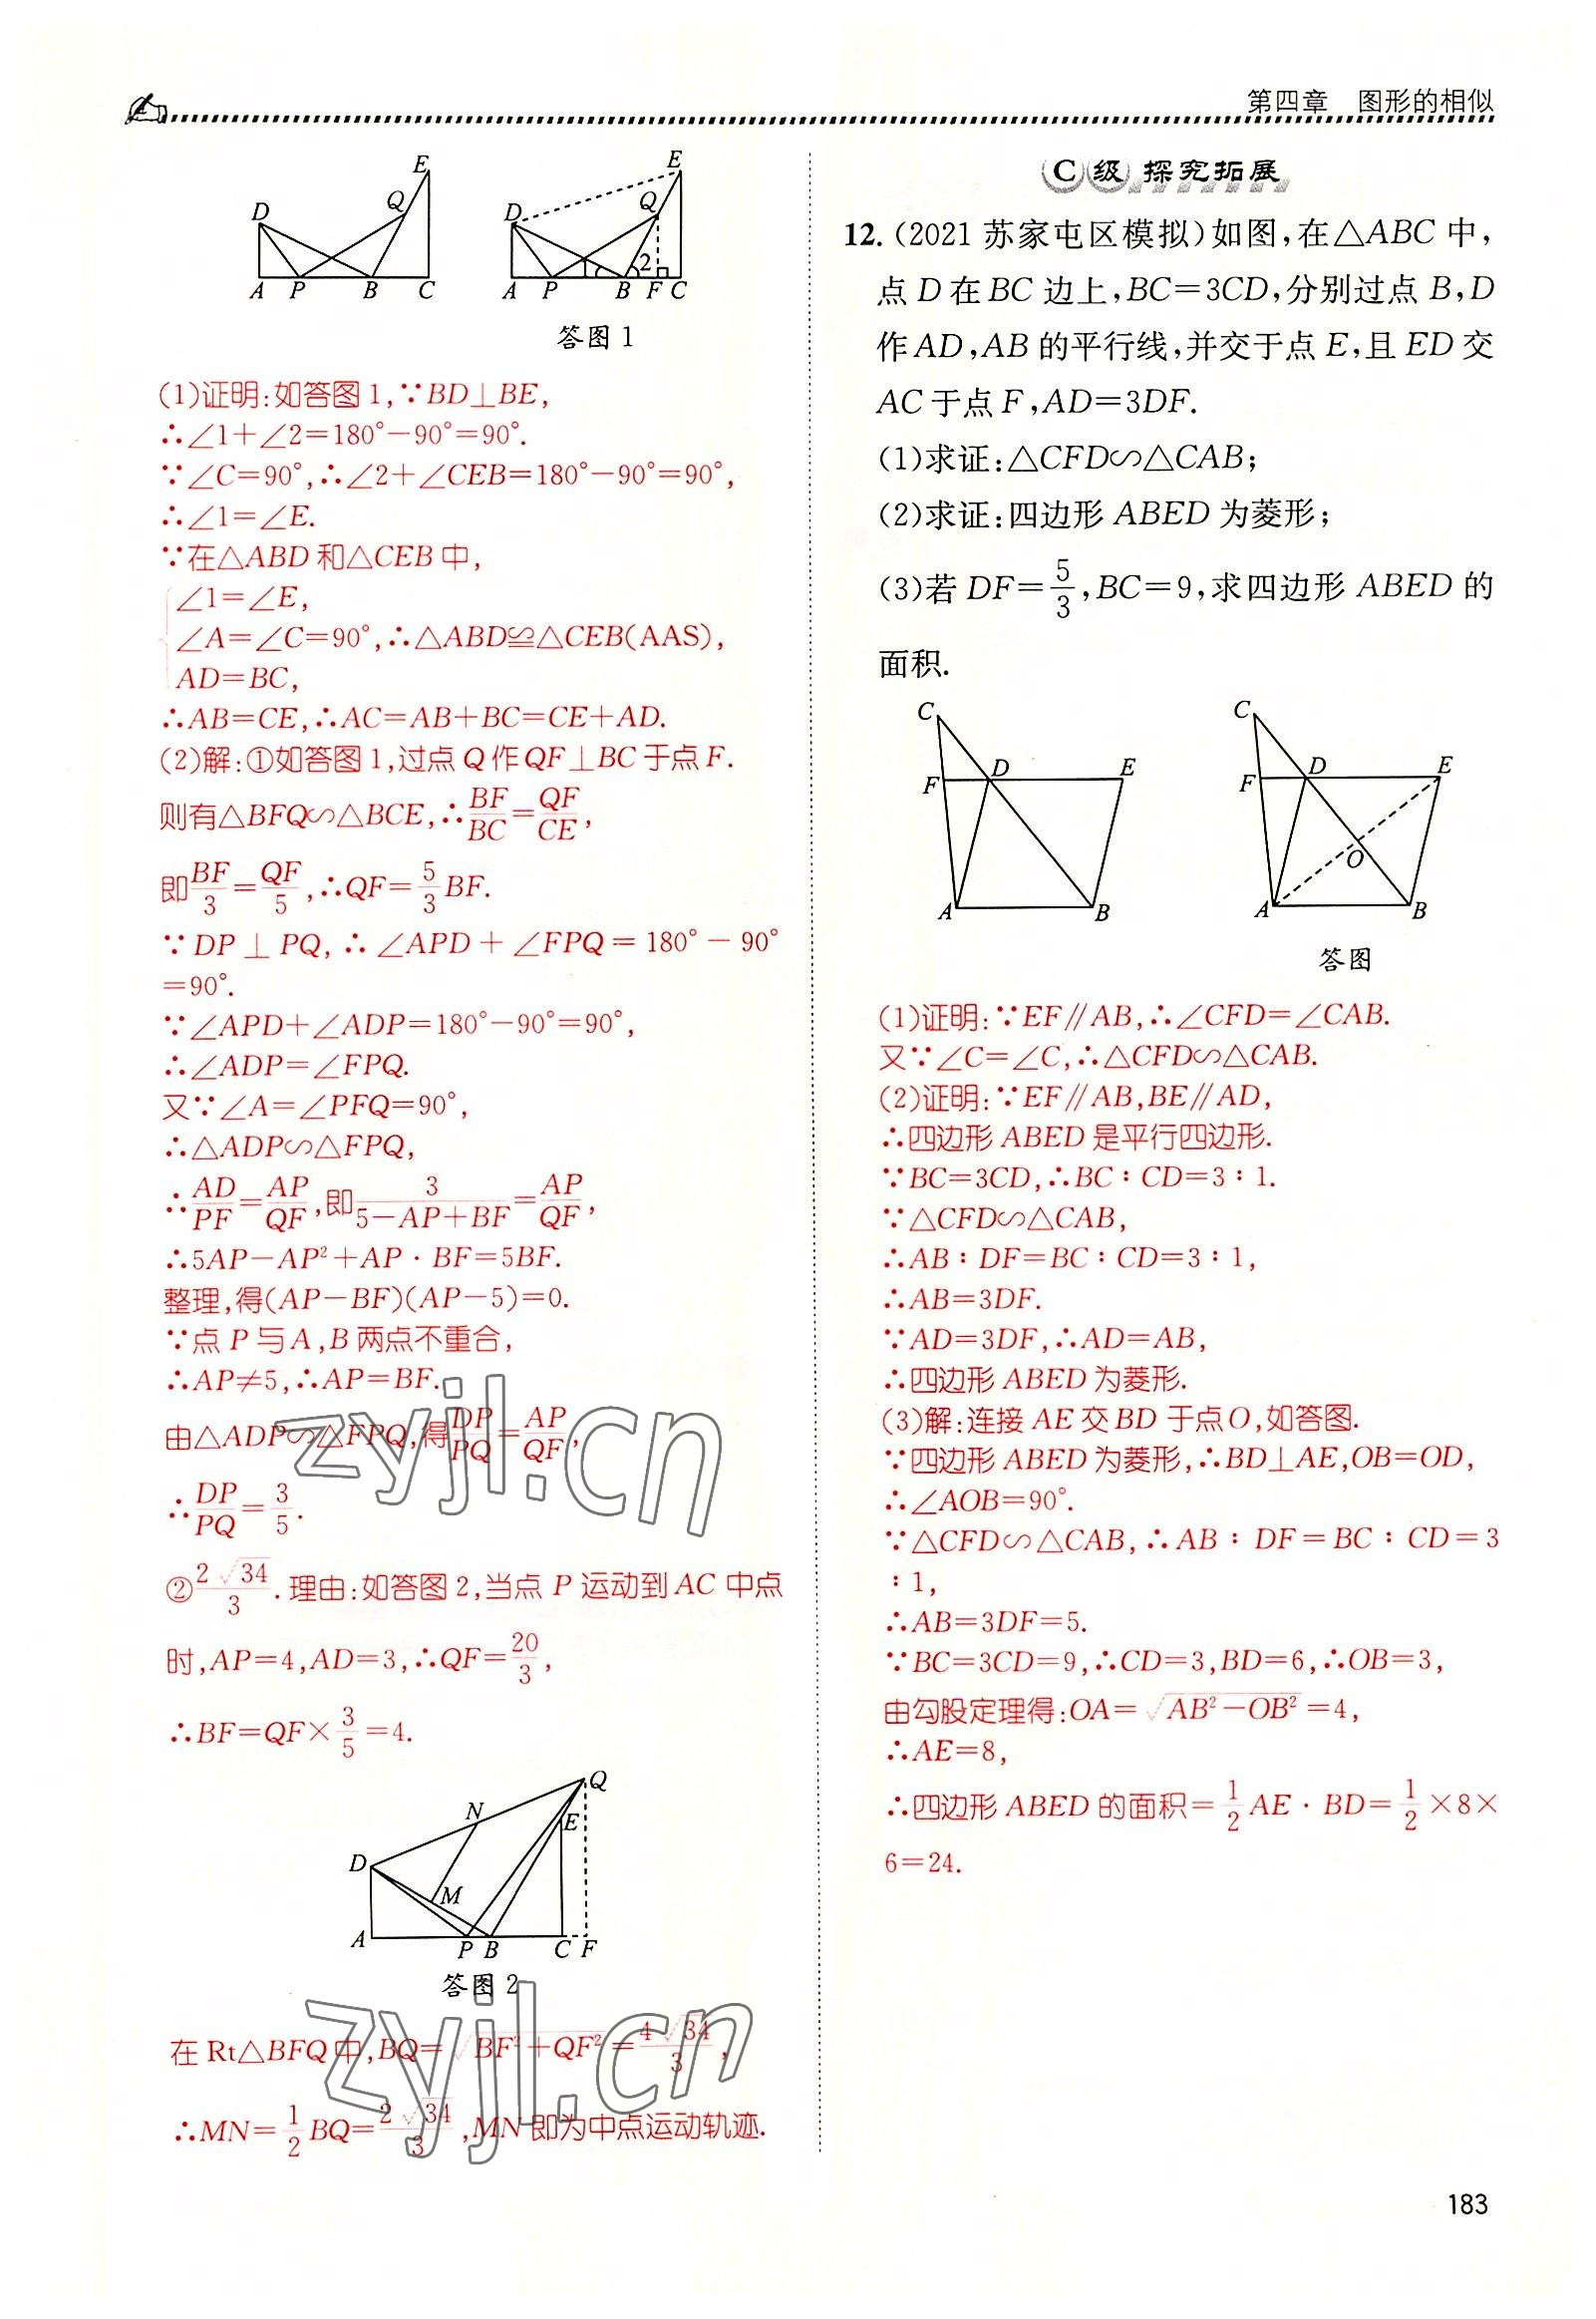 第四章 图形的相似
E
Q
D
A P B C
E
Q
D
2
A P B F C
答图1
(1)证明:如答图1,∵BD⊥BE,
∴∠1+∠2=180°-90°=90°.
∵∠C=90°,∴∠2+∠CEB=180°-90°=90°,
∴∠1=∠E.
∵在△ABD和△CEB中,
∠1=∠E,
∠A=∠C=90°,∴△ABD≌△CEB(AAS),
AD=BC,
∴AB=CE,∴AC=AB+BC=CE+AD.
(2)解:①如答图1,过点Q作QF⊥BC于点F.
则有△BFQ∽△BCE,∴BF/BC=QF/CE,
即BF/3=QF/5,∴QF=5/3BF.
∵DP⊥PQ,∴∠APD+∠FPQ=180°-90°
=90°.
∵∠APD+∠ADP=180°-90°=90°,
∴∠ADP=∠FPQ.
又∵∠A=∠PFQ=90°,
∴△ADP∽△FPQ,
∴AD/PF=AP/QF,即3/(5-AP+BF)=AP/QF,
∴5AP-AP²+AP·BF=5BF.
整理,得(AP-BF)(AP-5)=0.
∵点P与A,B两点不重合,
∴AP≠5,∴AP=BF.
由△ADP∽△FPQ,得DP/PQ=AP/QF,
∴DP/PQ=3/5.
②2√34/3.理由:如答图2,当点P运动到AC中点
时,AP=4,AD=3,∴QF=20/3,
∴BF=QF×3/5=4.
Q
N
E
D
M
A P B C F
答图2
在Rt△BFQ中,BQ=√(BF²+QF²)=4√34/3,
∴MN=1/2BQ=2√34/3,MN即为中点运动轨迹.
C级 探究拓展
12.(2021苏家屯区模拟)如图,在△ABC中,
点D在BC边上,BC=3CD,分别过点B,D
作AD,AB的平行线,并交于点E,且ED交
AC于点F,AD=3DF.
(1)求证:△CFD∽△CAB;
(2)求证:四边形ABED为菱形;
(3)若DF=5/3,BC=9,求四边形ABED的
面积.
C
F D E
A B
C
F D E
O
A B
答图
(1)证明:∵EF∥AB,∴∠CFD=∠CAB.
又∵∠C=∠C,∴△CFD∽△CAB.
(2)证明:∵EF∥AB,BE∥AD,
∴四边形ABED是平行四边形.
∵BC=3CD,∴BC∶CD=3∶1.
∵△CFD∽△CAB,
∴AB∶DF=BC∶CD=3∶1,
∴AB=3DF.
∵AD=3DF,∴AD=AB,
∴四边形ABED为菱形.
(3)解:连接AE交BD于点O,如答图.
∵四边形ABED为菱形,∴BD⊥AE,OB=OD,
∴∠AOB=90°.
∵△CFD∽△CAB,∴AB∶DF=BC∶CD=3
∶1,
∴AB=3DF=5.
∵BC=3CD=9,∴CD=3,BD=6,∴OB=3,
由勾股定理得:OA=√(AB²-OB²)=4,
∴AE=8,
∴四边形ABED的面积=1/2AE·BD=1/2×8×
6=24.
zyjl.cn
zyjl.cn
183